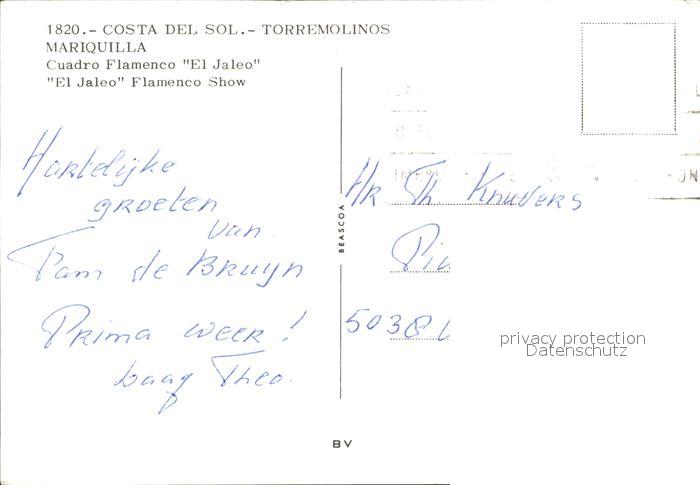 1820.- COSTA DEL SOL.- TORREMOLINOS
MARIQUILLA
Cuadro Flamenco "El Jaleo"
"El Jaleo" Flamenco Show
Hartelijke
groeten
van
Fam de Bruyn
Prima weer!
Theo.
BEASCOA
Hr Th Knuvers
5038
privacy protection
Datenschutz
BV